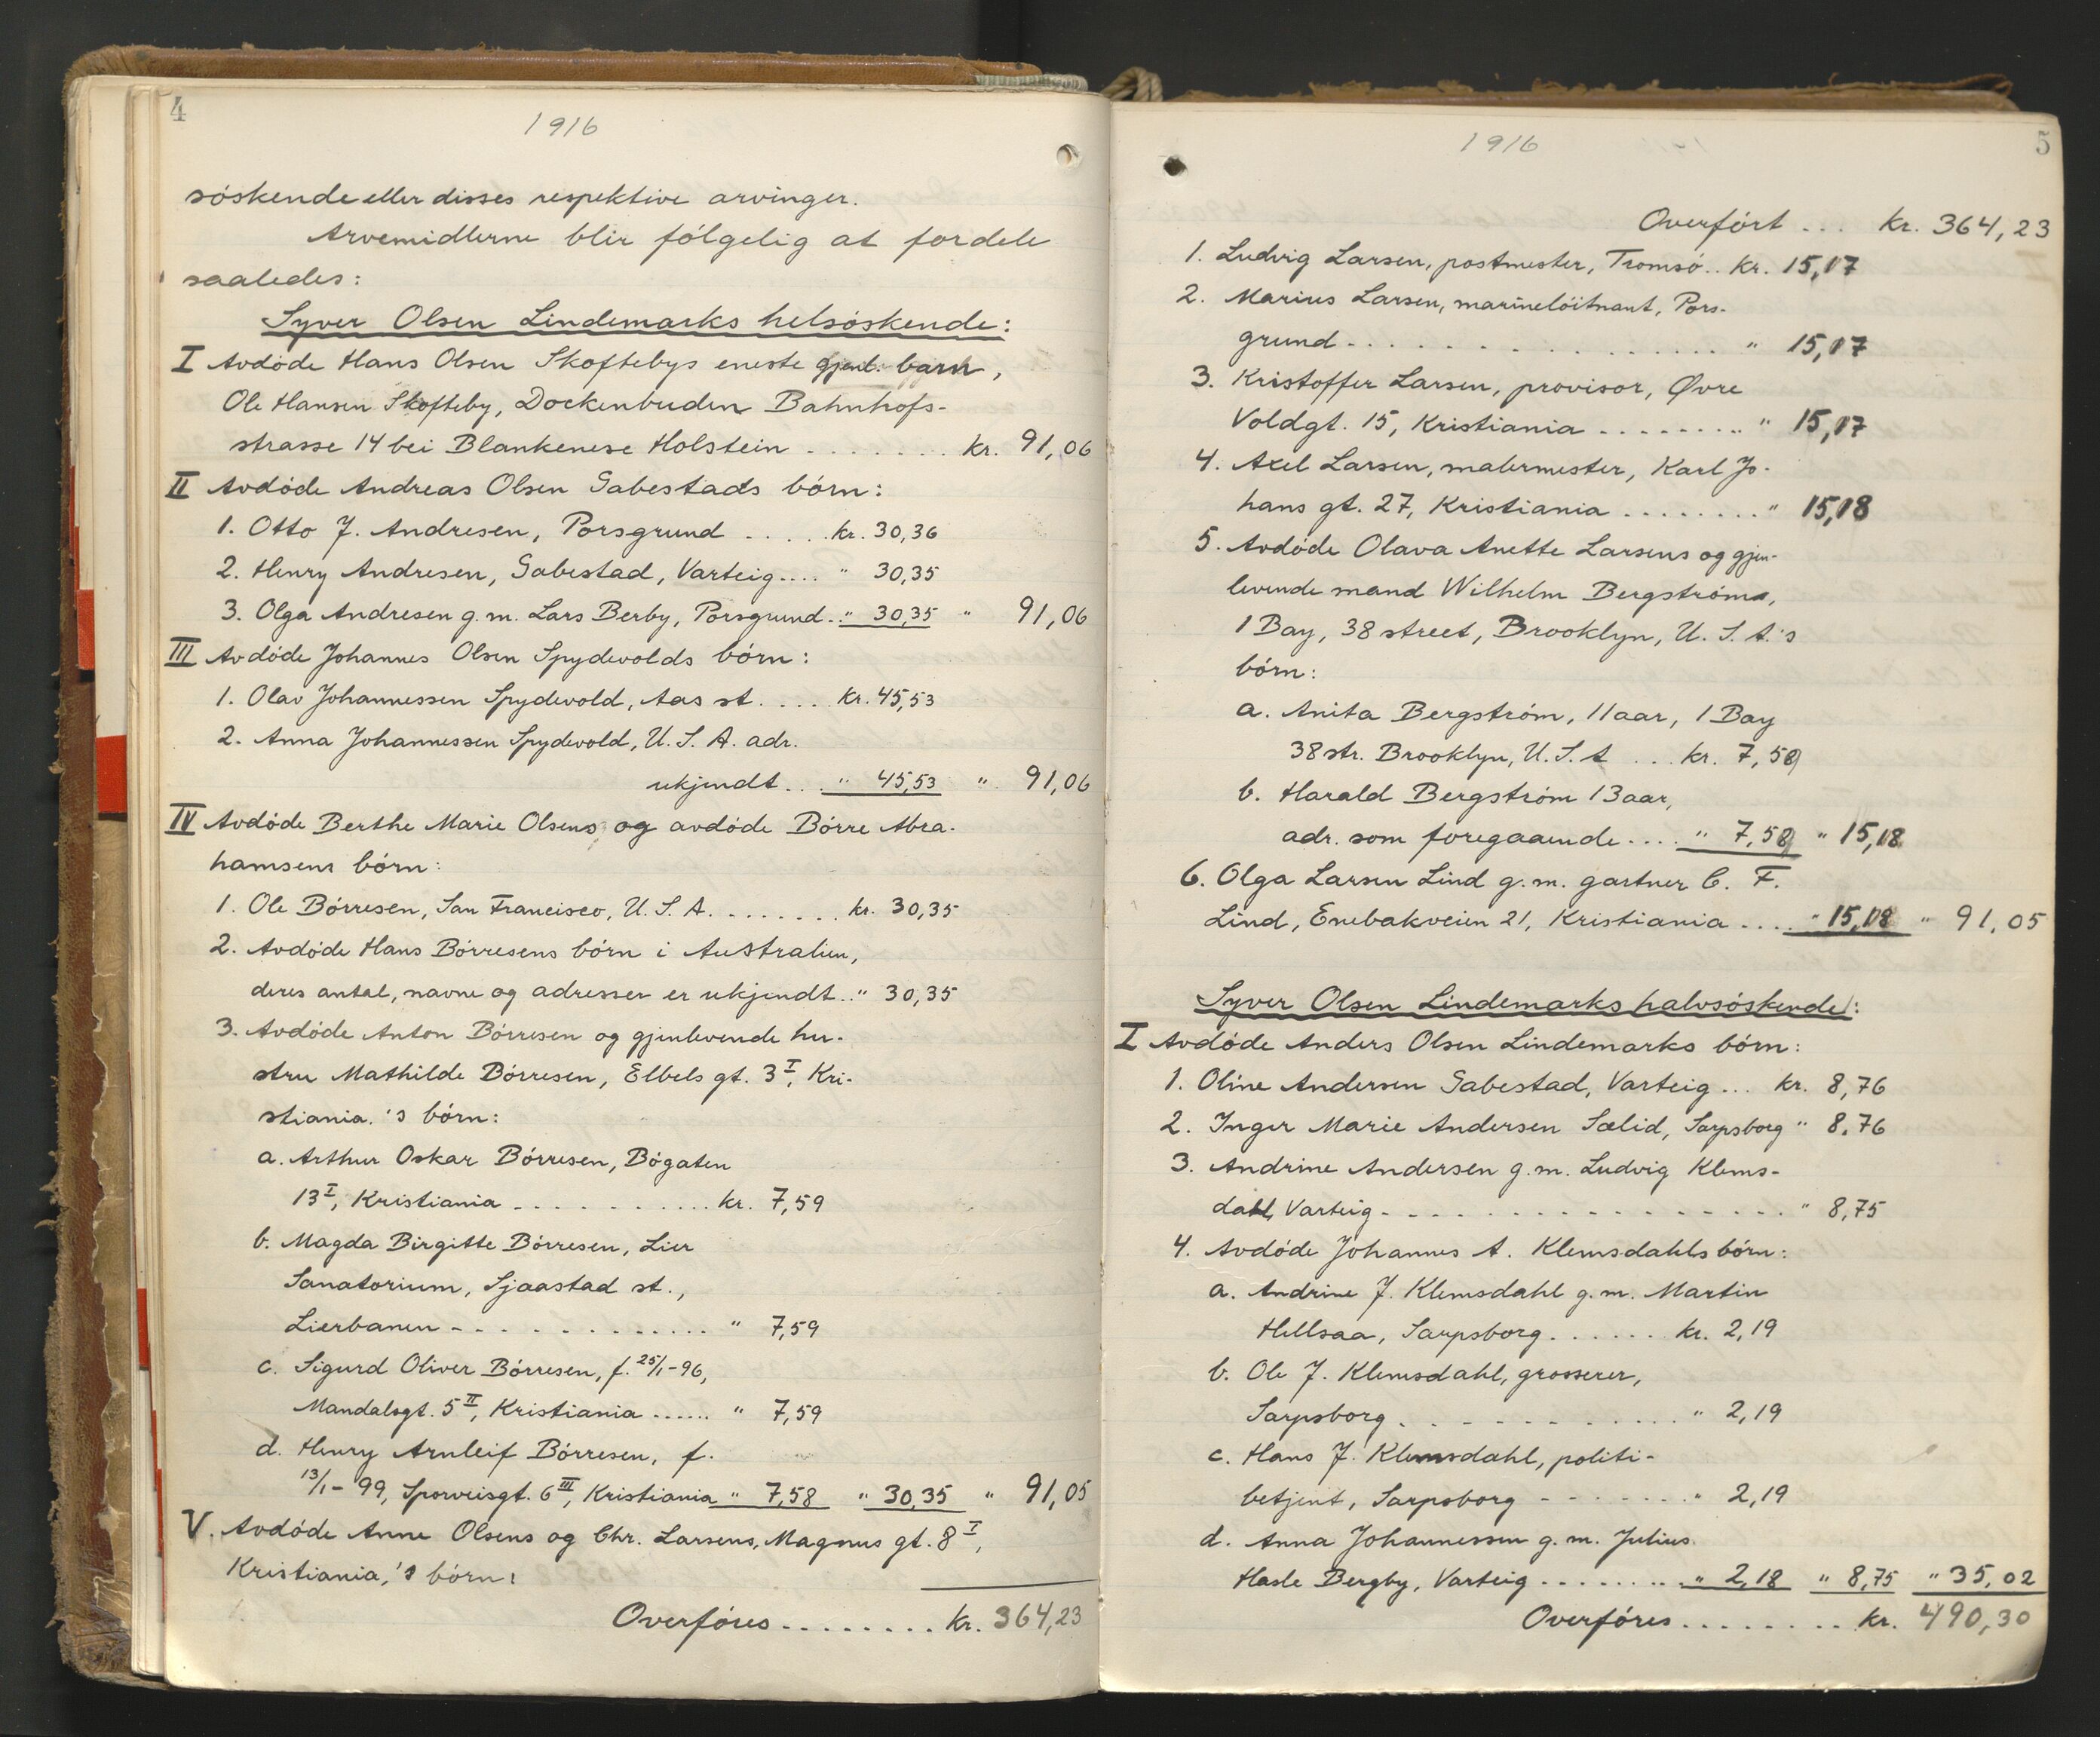 4
1916
söskende eller disses respektive arvinger.
Arvemidlerne blir fölgelig at fordele
saaledes:
Syver Olsen Lindemarks helsöskende:
I Avdöde Hans Olsen Skoftebys eneste gjenl. barn,
Ole Hansen Skofteby, Dockenhuden Bahnhofs-
strasse 14 bei Blankenese Holstein ....... kr. 91,06
II Avdöde Andreas Olsen Gabestads börn:
1. Otto J. Andresen, Porsgrund ..... kr. 30,36
2. Henry Andresen, Gabestad, Varteig.... " 30,35
3. Olga Andresen g.m. Lars Berby, Porsgrund.. " 30,35 " 91,06
III Avdöde Johannes Olsen Spydevolds börn:
1. Olav Johannessen Spydevold, Aas st. .... kr. 45,53
2. Anna Johannessen Spydevold, U.S.A. adr.
ukjendt... " 45,53 " 91,06
IV Avdöde Berthe Marie Olsens og avdöde Börre Abra-
hamsens börn:
1. Ole Börresen, San Francisco, U.S.A. ....... kr. 30,35
2. Avdöde Hans Börresens börn i Australien,
deres antal, navne og adresser er ukjendt.. " 30,35
3. Avdöde Anton Börresen og gjenlevende hu-
stru Mathilde Börresen, Elbels gt. 3 I, Kri-
stiania.'s börn:
a. Arthur Oskar Börresen, Bögaten
13 I, Kristiania ........... kr. 7,59
b. Magda Birgitte Börresen, Lier
Sanatorium, Sjaastad st.,
Lierbanen ............. " 7,59
c. Sigurd Oliver Börresen, f. 25/1-96,
Mandalsgt. 5 II, Kristiania ...... " 7,59
d. Henry Arnleif Börresen, f.
13/1-99, Sporveisgt. 6 III, Kristiania " 7,58 " 30,35 " 91,05
V. Avdöde Anne Olsens og Chr. Larsens, Magnus gt. 8 I,
Kristiania,'s börn:
Overföres ........ kr. 364,23
5
1916
Overfört ... kr. 364,23
1. Ludvig Larsen, postmester, Tromsö.. kr. 15,17
2. Marius Larsen, marinelöitnant, Pors-
grund ................. " 15,17
3. Kristoffer Larsen, provisor, Øvre
Voldgt. 15, Kristiania ......... " 15,17
4. Axel Larsen, malermester, Karl Jo-
hans gt. 27, Kristiania ........ " 15,18
5. Avdöde Olava Anette Larsens og gjen-
levende mand Wilhelm Bergström,
1 Bay, 38 street, Brooklyn, U.S.A.'s
börn:
a. Anita Bergström, 11 aar, 1 Bay
38 str. Brooklyn, U.S.A ... kr. 7,59
b. Harald Bergström 13 aar,
adr. som foregaaende .... " 7,59 " 15,18
6. Olga Larsen Lind g.m. gartner C. F.
Lind, Enebakveien 21, Kristiania .... " 15,18 " 91,05
Syver Olsen Lindemarks halvsöskende:
I Avdöde Anders Olsen Lindemarks börn:
1. Oline Andersen Gabestad, Varteig... kr. 8,76
2. Inger Marie Andersen Sælid, Sarpsborg " 8,76
3. Andrine Andersen g.m. Ludvig Klems-
dahl, Varteig ................ " 8,75
4. Avdöde Johannes A. Klemsdahls börn:
a. Andrine J. Klemsdahl g.m. Martin
Hellsaa, Sarpsborg ....... kr. 2,19
b. Ole J. Klemsdahl, grosserer,
Sarpsborg ............ " 2,19
c. Hans J. Klemsdahl, politi-
betjent, Sarpsborg ....... " 2,19
d. Anna Johannessen g.m. Julius
Hasle Bergby, Varteig ......... " 2,18 " 8,75 " 35,02
Overföres ........ kr. 490,30